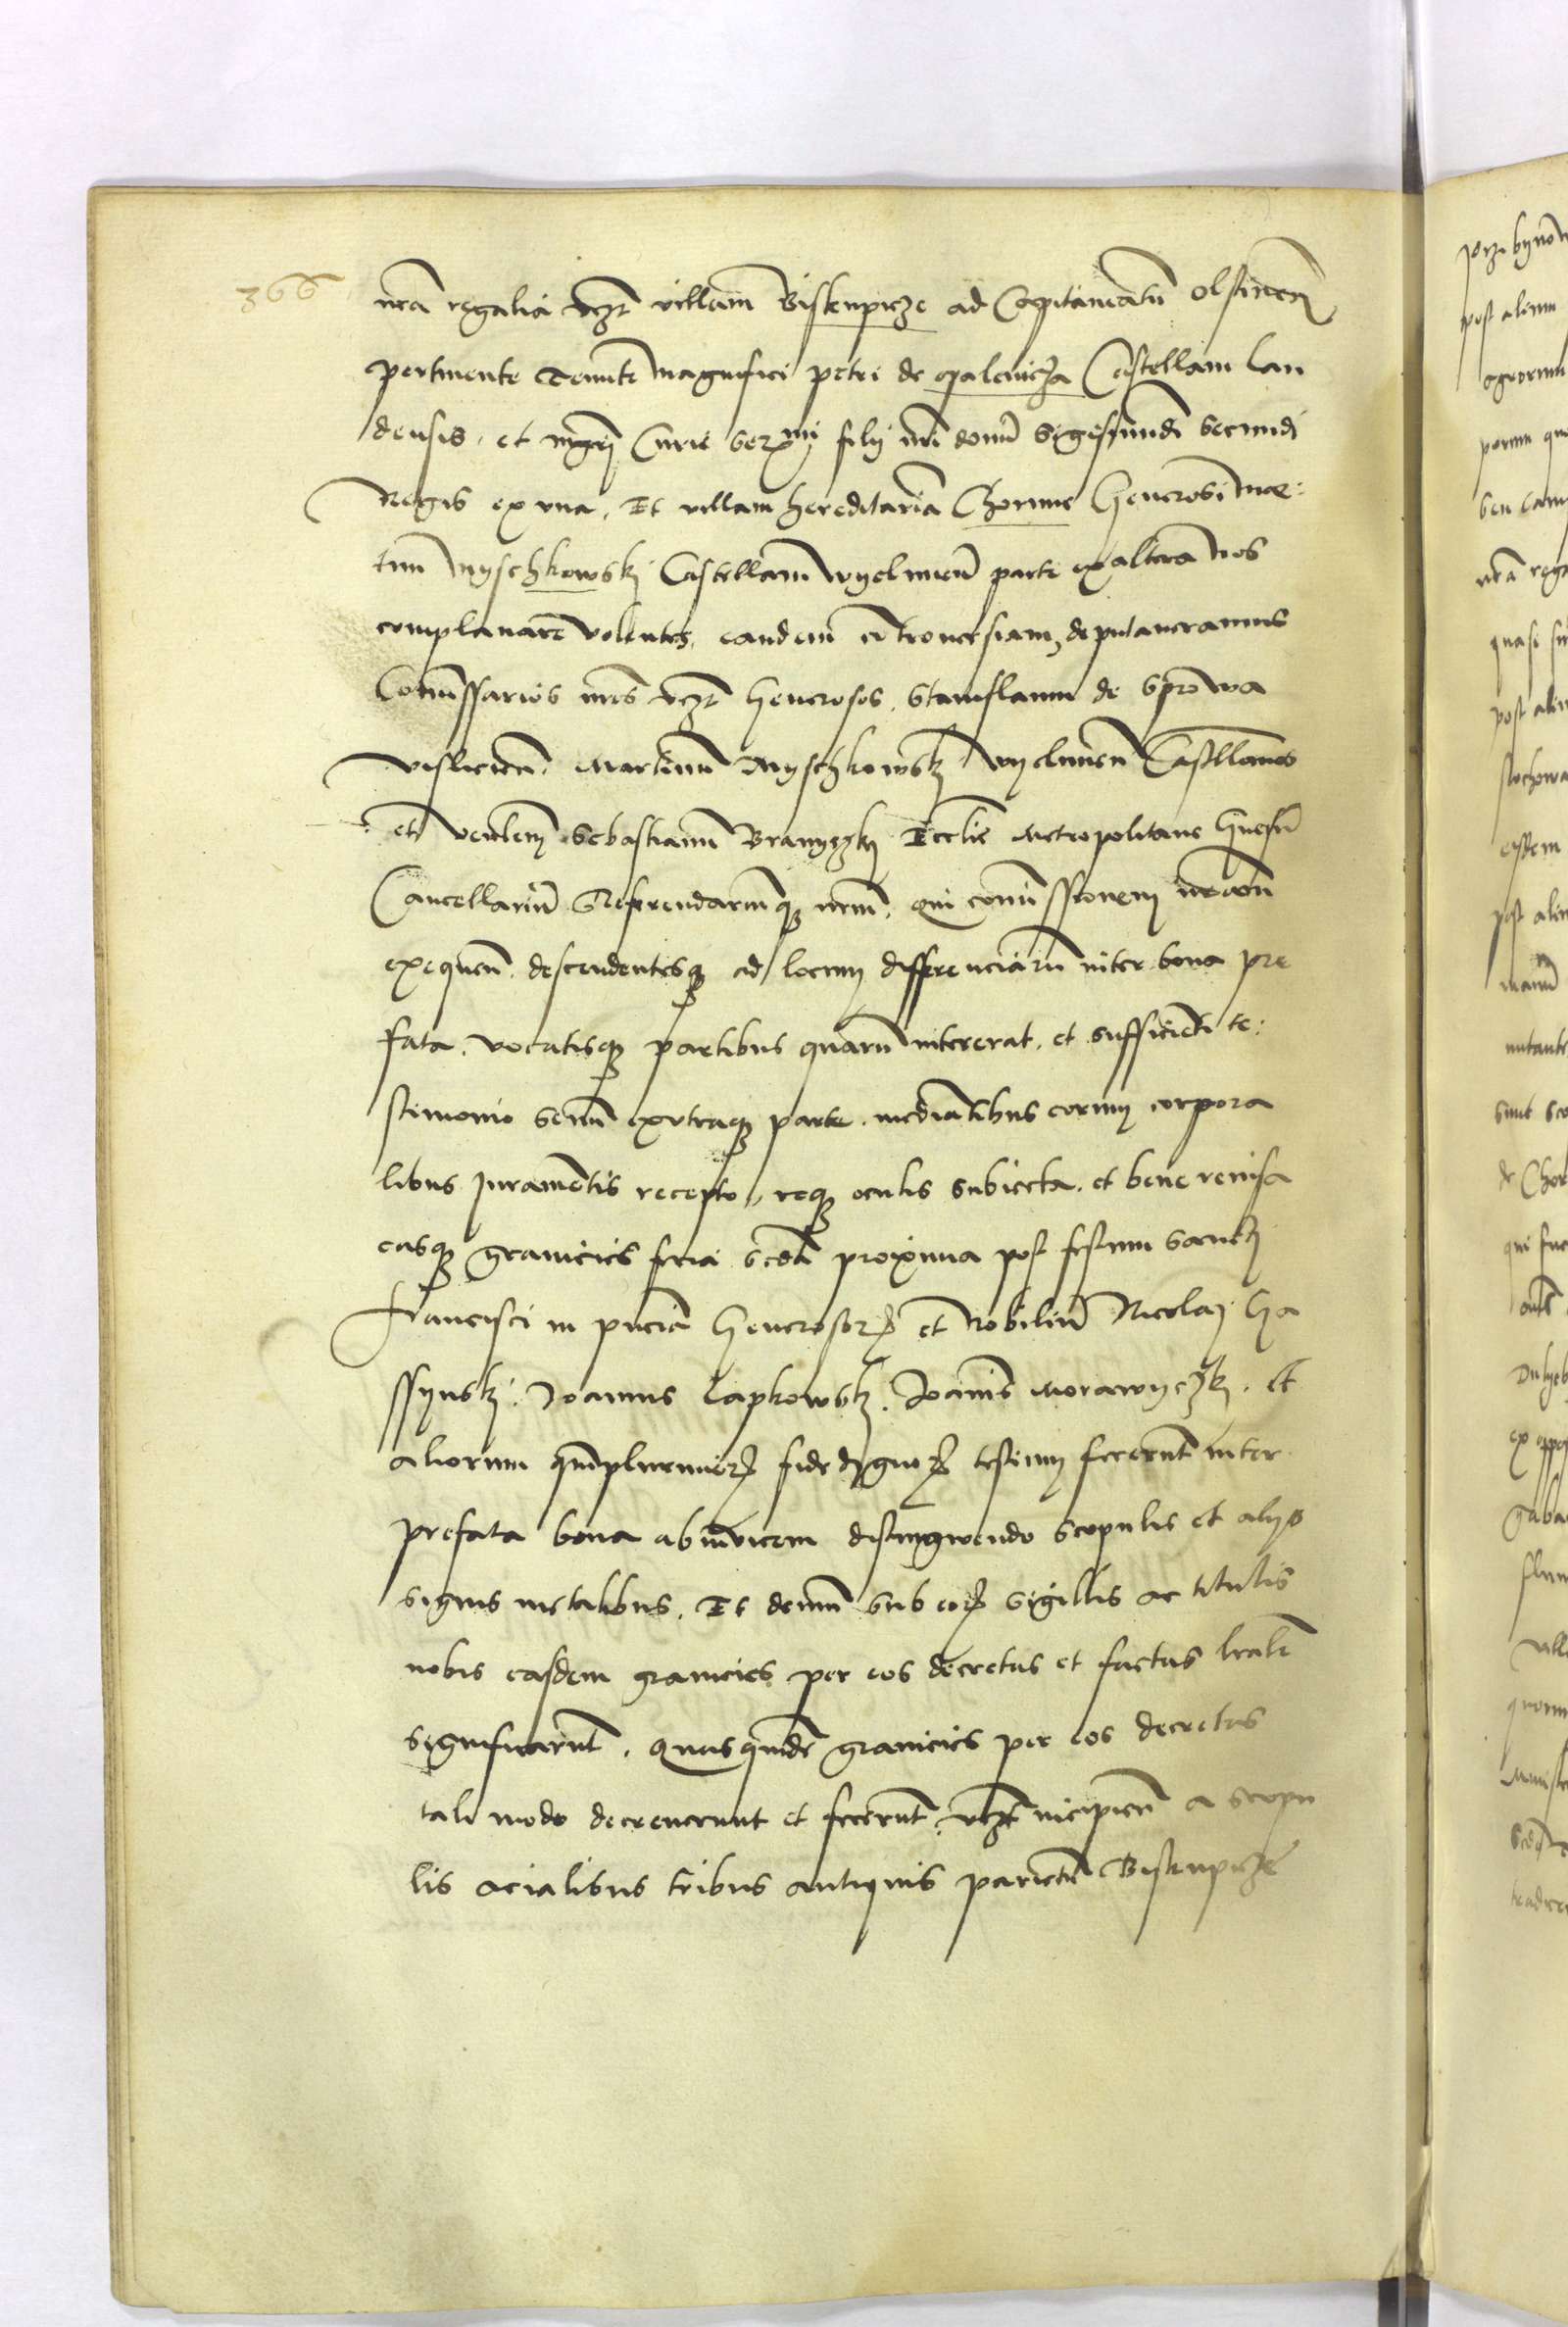 366
nrã regalia vczt villam Biskenpicze ad Capitaneatũ olstinen̄
pertinente Tenute magnifici petri de opalenicza Castellani lan
densis, et mgrĩ Curie serᵐⁱ filÿ nrĩ domĩ Sigismundi Secundi
Regis ex vna, Et villam hereditariã Chorune Generosi Mar:
tini Myschkowskÿ Castellani wyelunen̄ parte ex altera nos
complanare volentes, eandem cõtrouersiam, deputaueramus
Comissarios nrõs vczt Generosos, Stanislaum de Sprowa
vislicien̄, Martinũ Myschkowskÿ wyelunen̄ Castellanos
et venlem Sebastianũ Branyczkÿ Ecclie Metropolitane Gnesn̄
Cancellariũ Referendariũq; nrm̃, qui comissionem nrãm
exequen̄ descendentesq; ad locum differenciarũ inter bona pre
fata, vocatisq; partibus quarũ intererat, et sufficienti te:
stimonio senũ ex vtraq; parte, mediantibus eorum corpora
libus Juramentis recepto, req; oculis subiecta, et bene reuisa
easq; granicies feria scd̃a proxima post festum Sancti
Francisci in pn̄cia Generosorꝫ et Nobiliũ Nicolai Ga
ssynskÿ, Joannis Lapkowskÿ, Joannis Morawyczkÿ, et
aliorum qm̃plurimorꝫ fide dignorꝫ testium fecerunt inter
prefata bona abinuicem distingwendo scopulis et alÿs
signis metalibus, Et demũ sub eorꝫ sigillis ac titulis
nobis easdem granicies per eos decretas et factas lrãlr̃
significarunt, Quas quidẽ granicies per eos decretas
tali modo decreuerunt et fecerunt, vczt incipien̄ a scopu
lis acialibus tribus antiquis parietẽ Biskenpicze